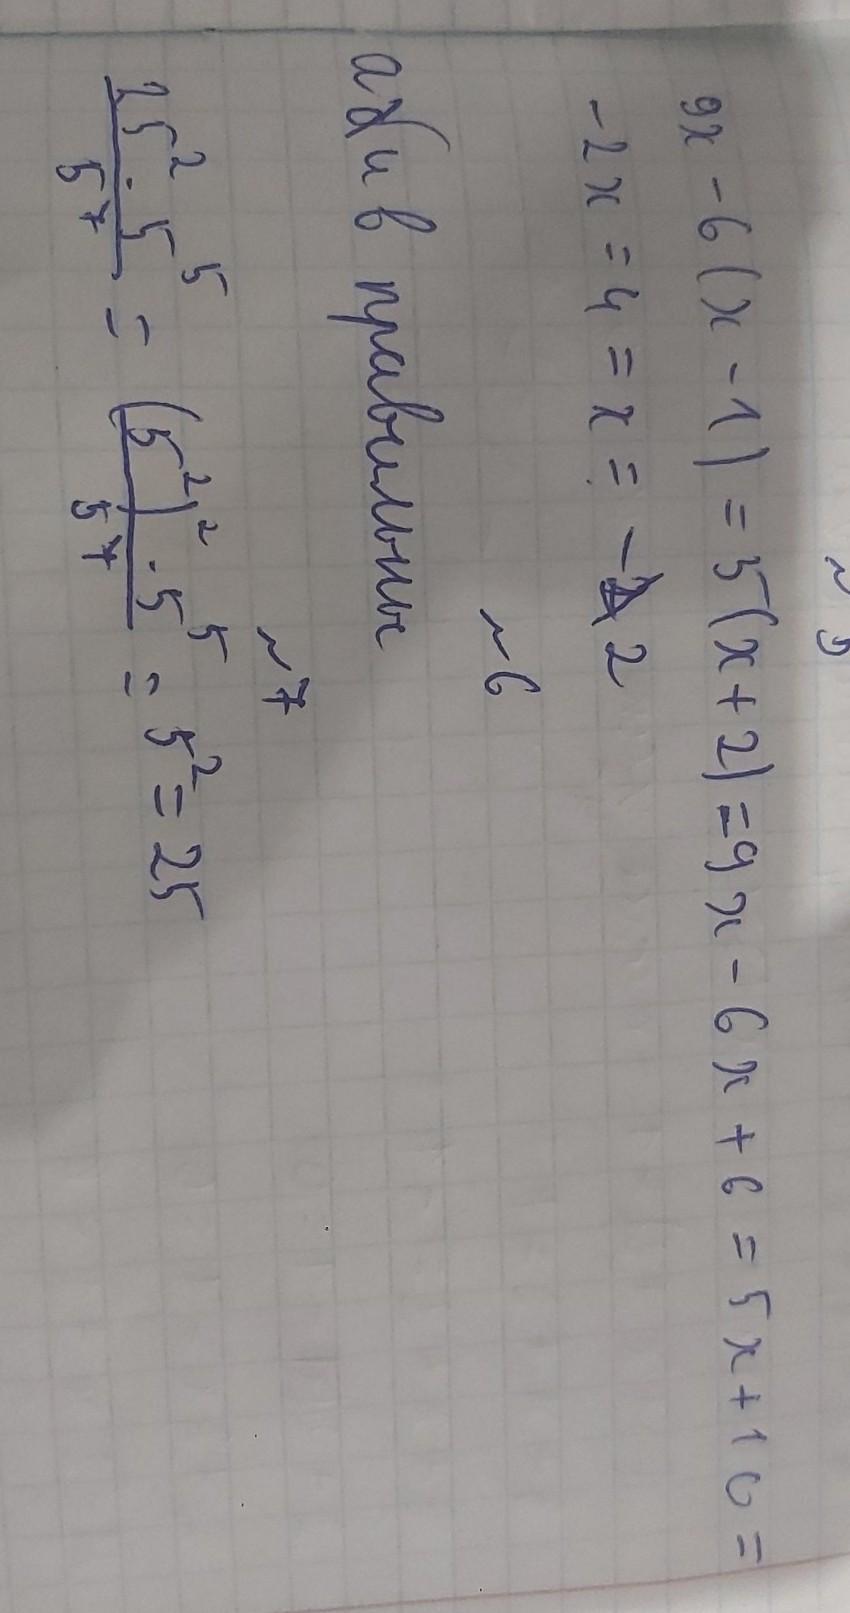 ~5
9x - 6(x - 1) = 5(x + 2) = 9x - 6x + 6 = 5x + 10 =
-2x = 4 = x = - 2
~6
а и в правильны
~7
25² · 5⁵ / 5⁷ = (5²)² · 5⁵ / 5⁷ = 5² = 25